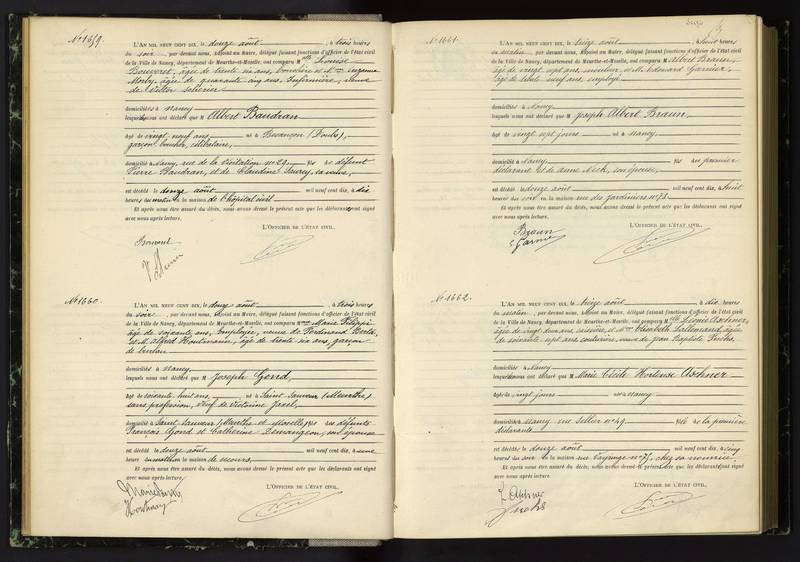 N° 1659.
L'AN MIL NEUF CENT DIX, le douze août, à trois heures
du soir, par devant nous, Adjoint au Maire, délégué faisant fonctions d'officier de l'état civil
de la Ville de Nancy, département de Meurthe-et-Moselle, ont comparu M lle Louise
Bouveret, âgée de trente six ans, bouchère et Mme Suzanne
Morly, âgée de quarante cinq ans, infirmière, veuve
de Victor
domiciliés à Nancy
lesquels nous ont déclaré que M Albert Baudran
âgé de vingt neuf ans, né à Besançon (Doubs),
garçon boucher, célibataire,
domicilié à Nancy, rue de la Visitation n° 29, fils de défunt
Pierre Baudran, et de Claudine sa veuve,
est décédé le douze août mil neuf cent dix, à dix
heures du matin en la maison de l'hôpital civil
Et après nous être assuré du décès, nous avons dressé le présent acte que les déclarants ont signé
avec nous après lecture.
L'OFFICIER DE L'ÉTAT CIVIL,
N° 1660.
L'AN MIL NEUF CENT DIX, le douze août, à trois heures
du soir, par devant nous, Adjoint au Maire, délégué faisant fonctions d'officier de l'état civil
de la Ville de Nancy, département de Meurthe-et-Moselle, ont comparu Mme Marie Filippi
âgée de soixante ans, employée, veuve de Ferdinand
et M. Alfred Houtmann, âgé de trente six ans, garçon
de bureau
domiciliés à Nancy
lesquels nous ont déclaré que M Joseph Gond
âgé de soixante huit ans, né à Saint Sauveur (Meurthe)
sans profession, veuf de Victorine
domicilié à Saint Sauveur (Meurthe et Moselle) fils de défunts
François Gond et Catherine Demangeon, son épouse
est décédé le douze août mil neuf cent dix, à une
heure du matin en la maison de secours
Et après nous être assuré du décès, nous avons dressé le présent acte que les déclarants ont signé
avec nous après lecture.
L'OFFICIER DE L'ÉTAT CIVIL,
N° 1661.
L'AN MIL NEUF CENT DIX, le treize août, à huit heures
du matin, par devant nous, Adjoint au Maire, délégué faisant fonctions d'officier de l'état civil
de la Ville de Nancy, département de Meurthe-et-Moselle, ont comparu M Albert Braun,
âgé de vingt sept ans, mouleur, et M. Edouard Garnier,
âgé de trente neuf ans, employé
domiciliés à Nancy
lesquels nous ont déclaré que M Joseph Albert Braun,
âgé de vingt sept jours né à Nancy
domicilié à Nancy fils du premier
déclarant et de Anne Nech, son épouse,
est décédé le douze août mil neuf cent dix, à huit
heures du soir en la maison rue des Jardiniers n° 71
Et après nous être assuré du décès, nous avons dressé le présent acte que les déclarants ont signé
avec nous après lecture.
L'OFFICIER DE L'ÉTAT CIVIL,
Braun
N° 1662.
L'AN MIL NEUF CENT DIX, le treize août, à dix heures
du matin, par devant nous, Adjoint au Maire, délégué faisant fonctions d'officier de l'état civil
de la Ville de Nancy, département de Meurthe-et-Moselle, ont comparu M lle Léonie Aschner,
âgée de vingt deux ans, et Mme Elisabeth Lallemand, âgée
de soixante sept ans, couturière, veuve de Jean Baptiste
domiciliés à Nancy
lesquels nous ont déclaré que M Marie Cécile Hortense Aschner
âgée de vingt jours née à Nancy
domiciliée à Nancy rue Sellier n° 49 fille de la première
déclarante
est décédée le douze août mil neuf cent dix, à cinq
heures du soir en la maison rue n° 7, chez sa nourrice
Et après nous être assuré du décès, nous avons dressé le présent acte que les déclarants ont signé
avec nous après lecture.
L'OFFICIER DE L'ÉTAT CIVIL,
L Aschner